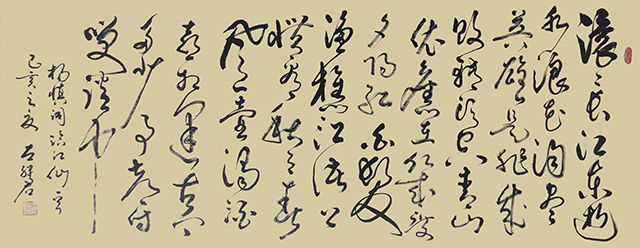 滚々长江东逝
水浪花淘尽
英雄是非成
败转头空青山
依旧在几度
夕阳红白发
渔樵江渚上
惯看秋月春
风一壶浊酒
喜相逢古今
多少事都付
笑谈中
杨慎词临江仙
己亥之夏